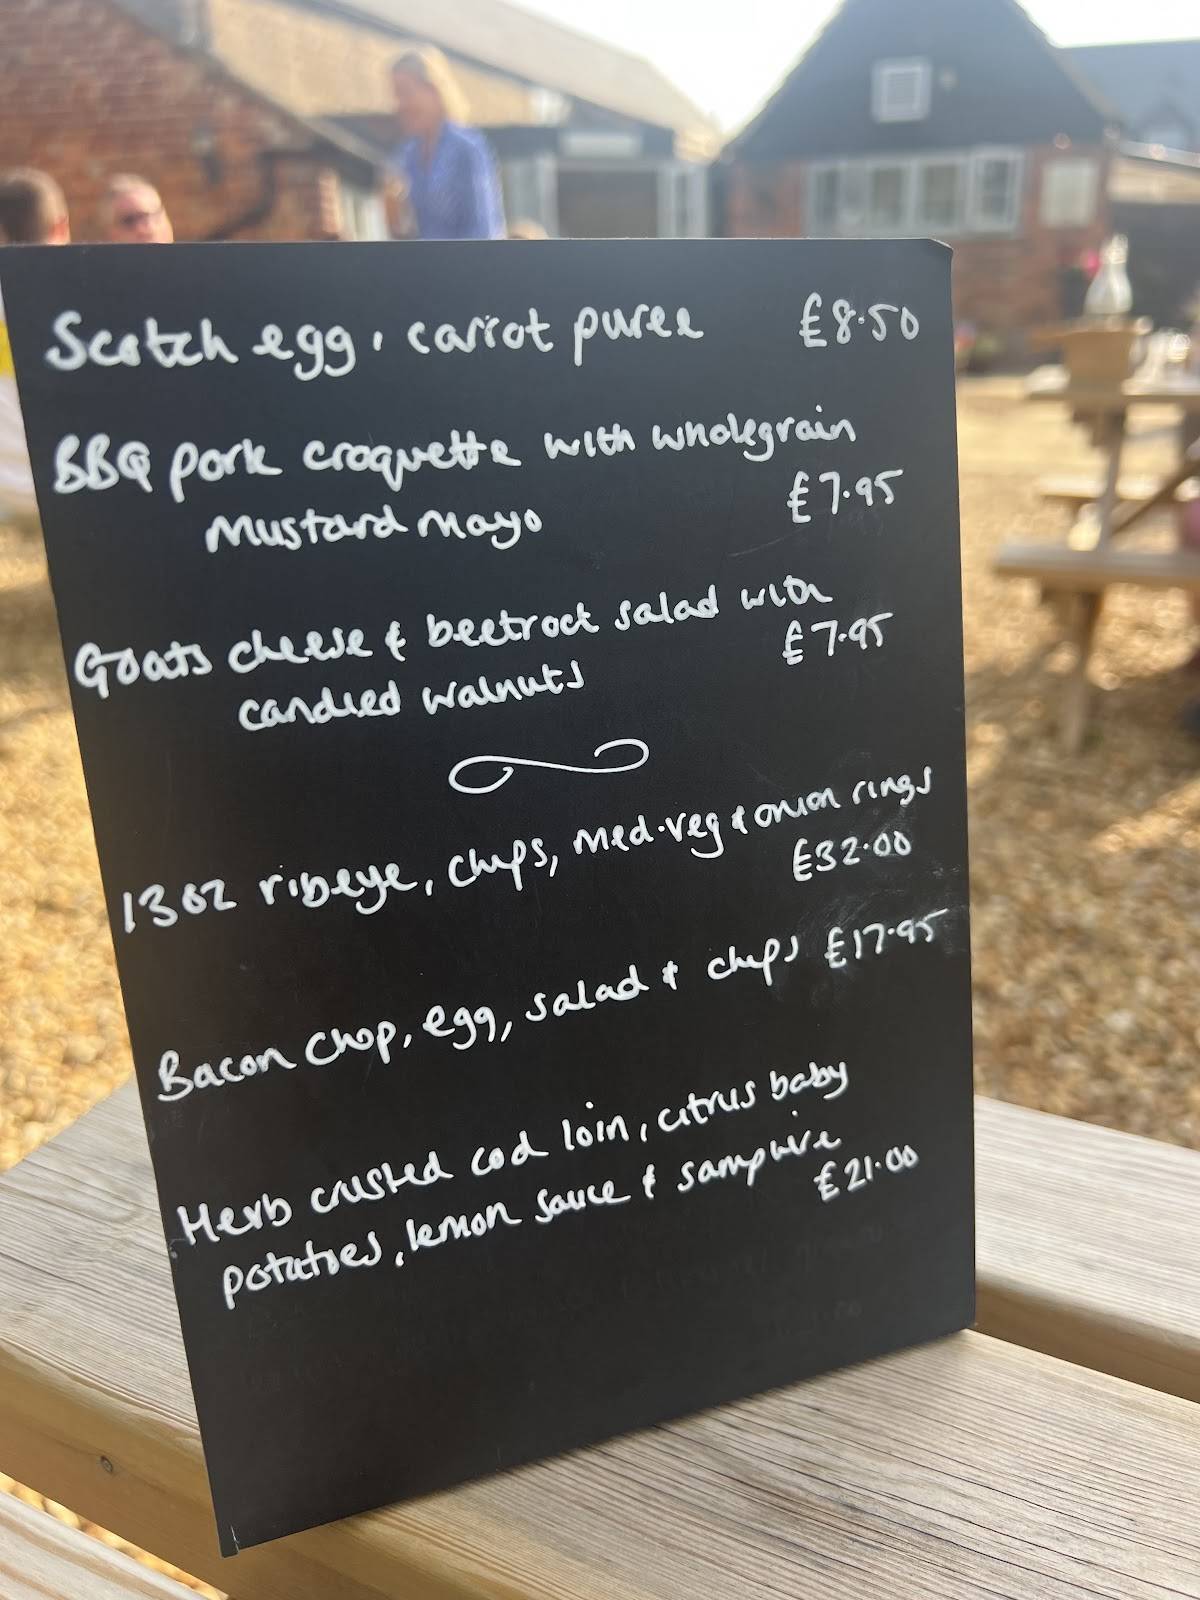 Scotch egg, carrot puree £8.50
BBQ pork croquette with wholegrain
Mustard Mayo £7.95
Goats cheese & beetroot salad with
candied walnuts £7.95
13oz ribeye, chips, med-veg & onion rings
£32.00
Bacon Chop, egg, salad & chips £17.95
Herb crusted cod loin, citrus baby
potatoes, lemon sauce & samphire
£21.00